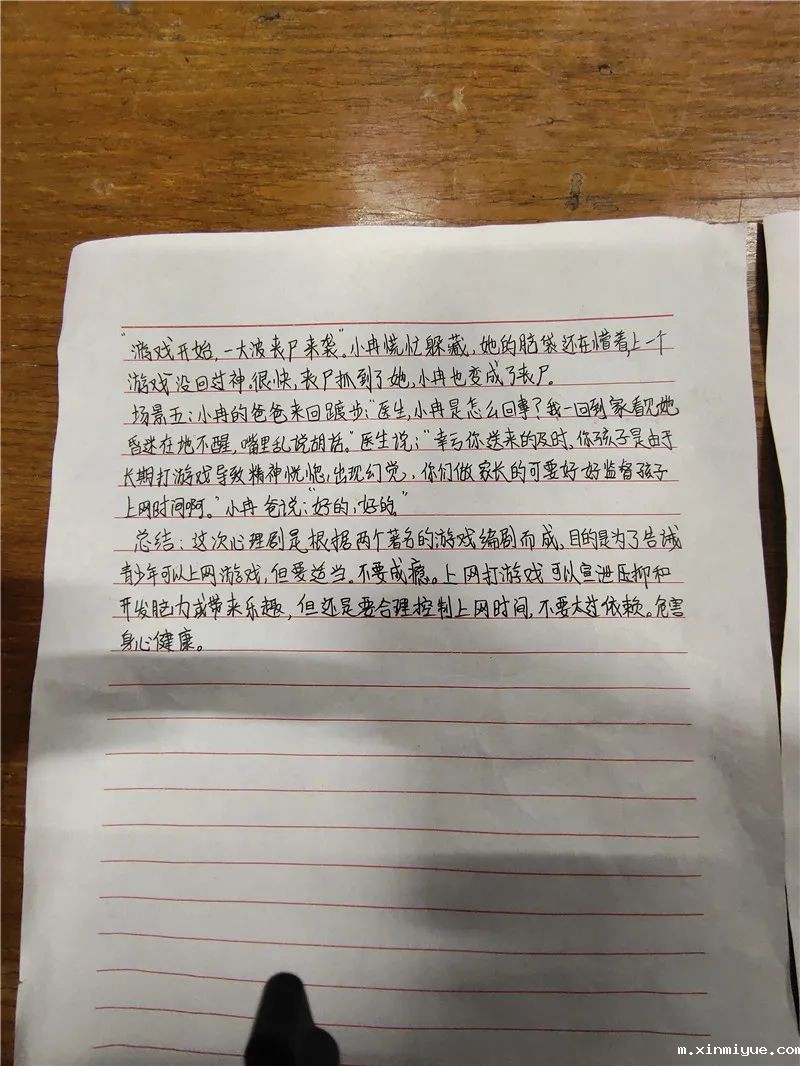 “游戏开始,一大波丧尸来袭”。小冉慌忙躲藏,她的脑袋还在懵着,上一个
游戏没回过神。很快,丧尸抓到了她,小冉也变成了丧尸。
场景五:小冉的爸爸来回踱步:“医生,小冉是怎么回事?我一回到家看见她
昏迷在地不醒,嘴里乱说胡话。”医生说:“幸亏你送来的及时,你孩子是由于
长期打游戏导致精神恍惚,出现幻觉,你们做家长的可要好好监督孩子
上网时间啊。”小冉爸说:“好的,好的。”
总结:这次心理剧是根据两个著名的游戏编剧而成,目的是为了告诫
青少年可以上网游戏,但要适当。不要成瘾。上网打游戏可以宣泄压抑和
开发脑力或带来乐趣,但还是要合理控制上网时间,不要太过依赖。危害
身心健康。
m.xinmiyue.com